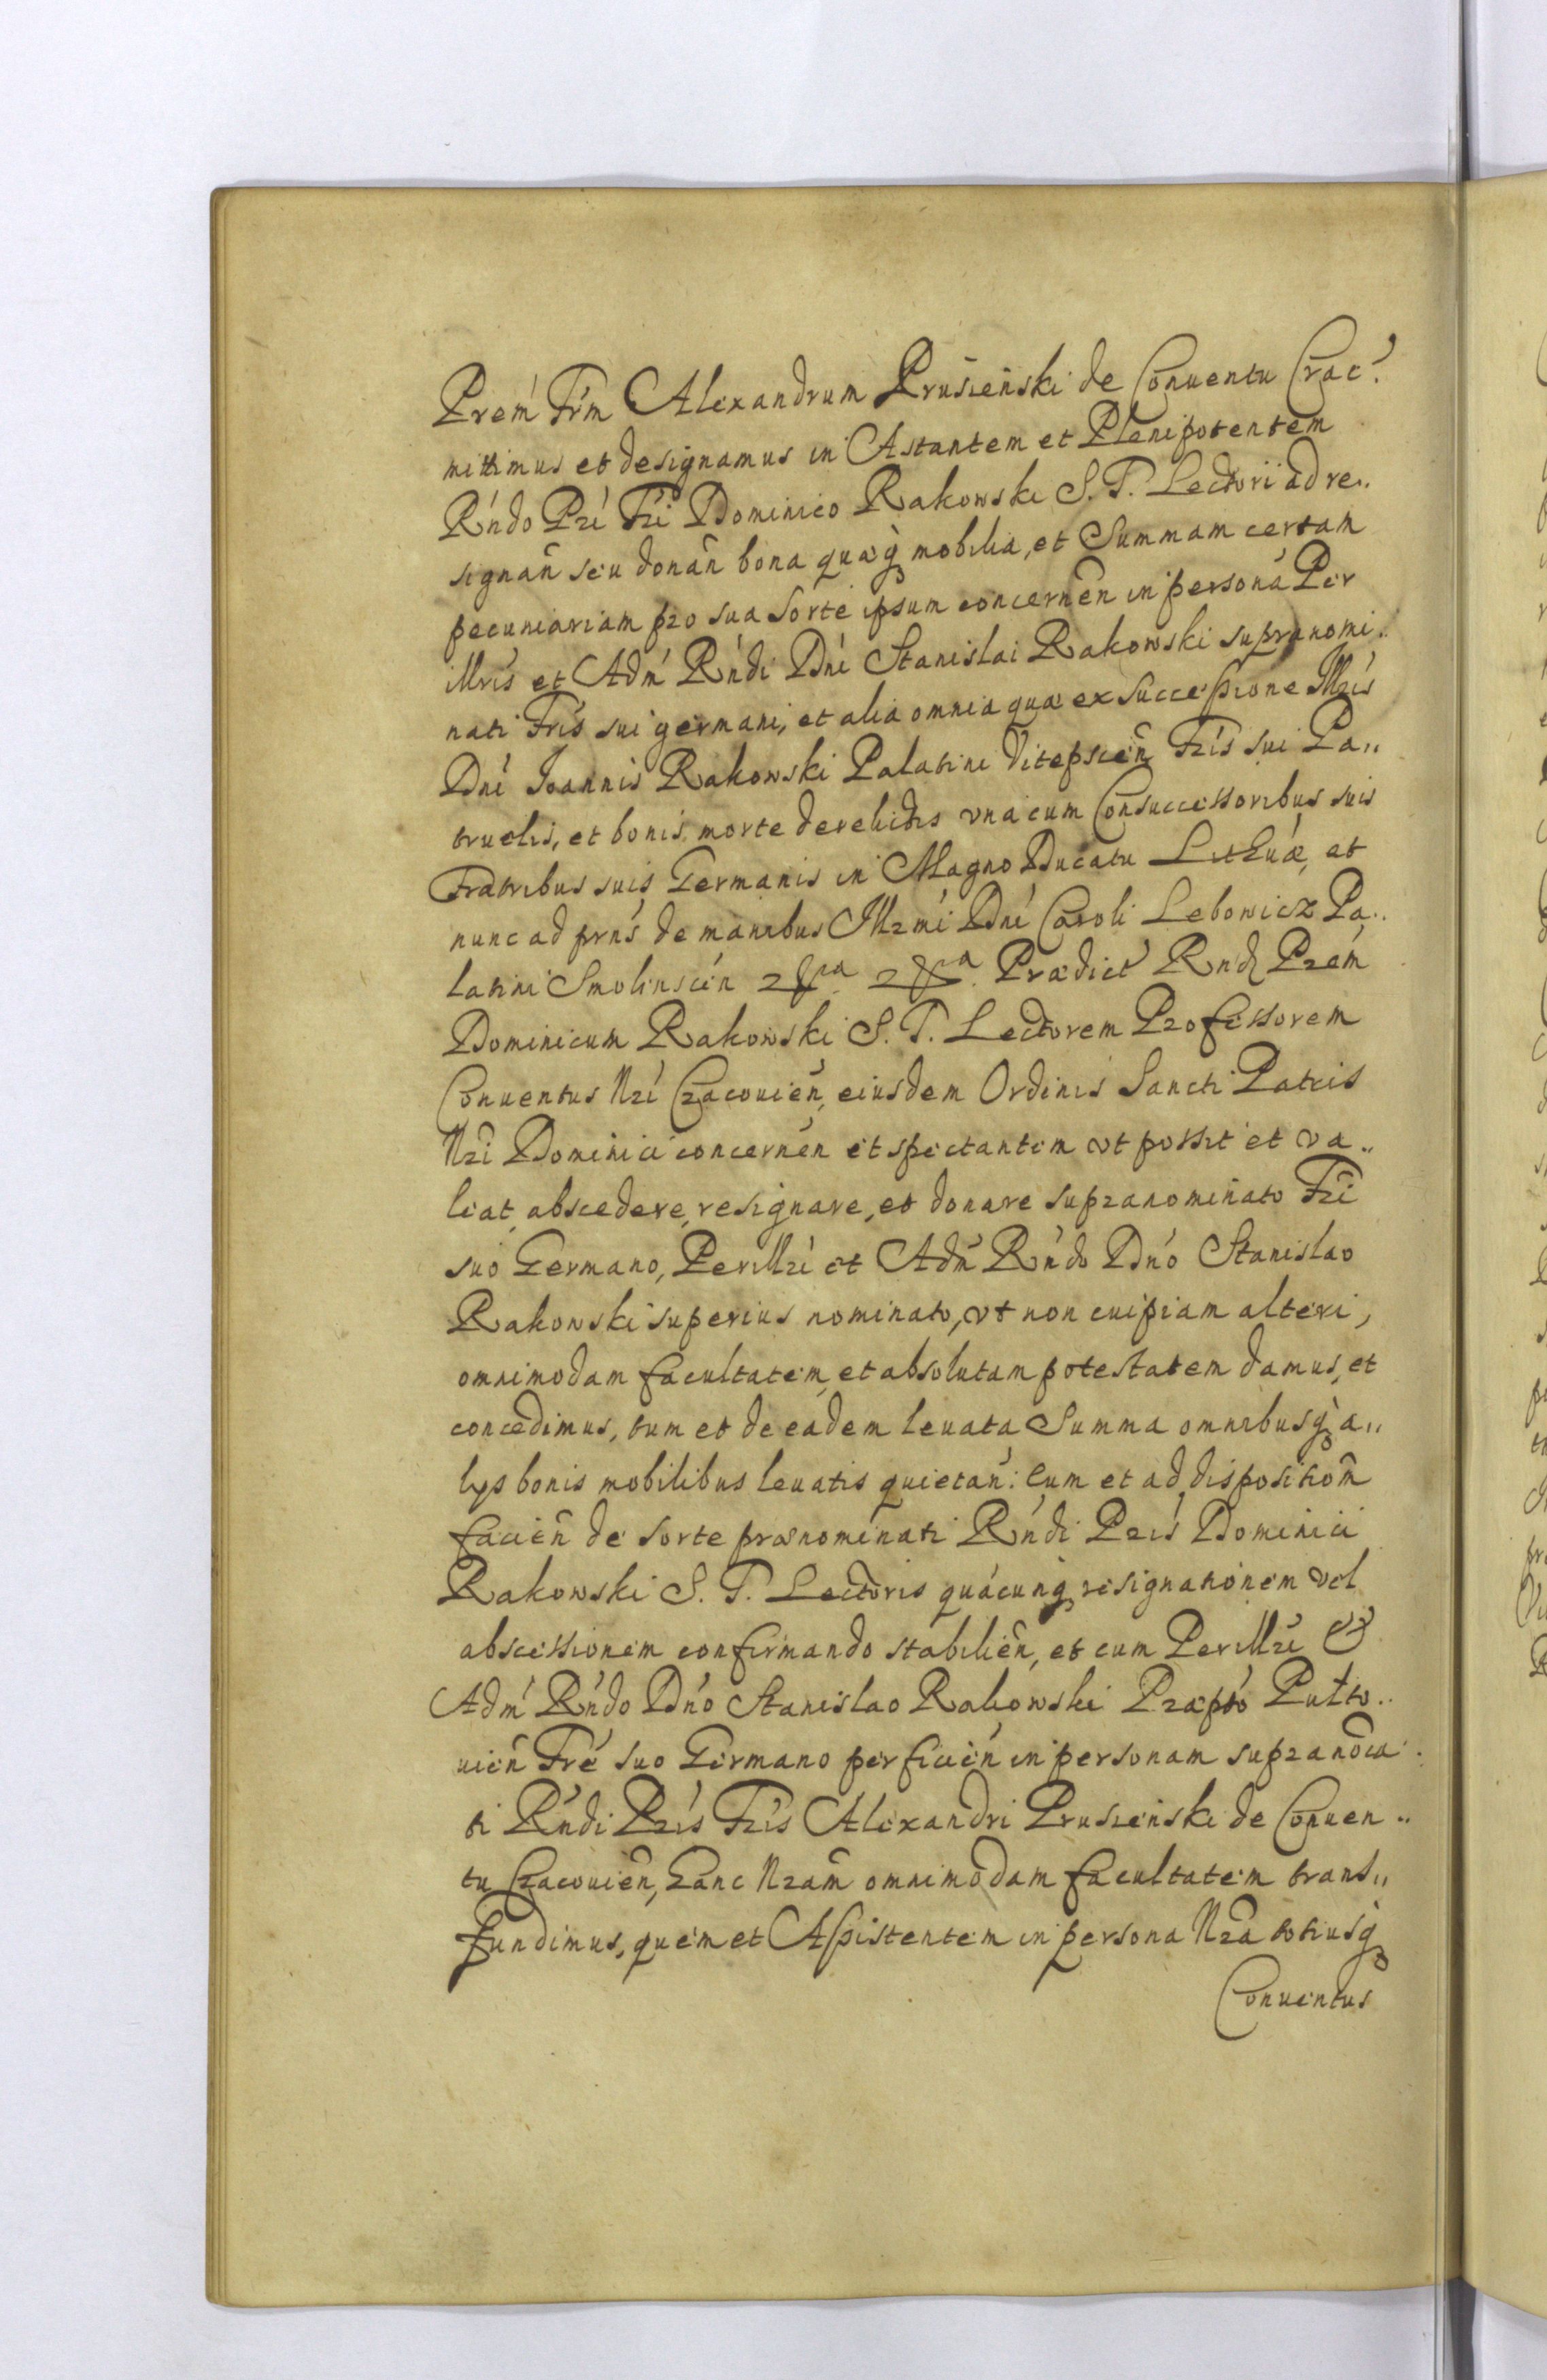 Prem̃ Frm̃ Alexandrum Prusieński de Conuentu Crac̃.
mittimus et designamus in Astantem et Plenipotentem
Rńdo Pri Fri Dominico Rakowski S. T. Lectori ad re„
signan̄ seu donan̄ bona quæq̨ mobilia, et Summam certam
pecuniariam pro sua Sorte ipsum concernen̄ in personā Per
illris et Adm̃ Rńdi Dńi Stanislai Rakowski supranomi„
nati Fris sui germani, et alia omnia quæ ex successione Illris
Dńi Joannis Rakowski Palatini Vitepscien̄ Fris sui Pa„
truelis, et bonis morte derelictis vna cum Consuccessoribus suis
Fratribus suis Germanis in Magno Ducatu Lithuæ, et
nunc ad prns̃ de manibus Illrm̃i Dńi Caroli Lebowicz Pa„
latini Smolinscen̄ Prædict̃ Rnd̨ Prem̃
Dominicum Rakowski S. T. Lectorem Professorem
Conuentus Nri Cracouien̄, eiusdem Ordinis Sancti Patris
Nri Dominici concernen̄ et spectantem vt possit et va„
leat abscedere, resignare, et donare supranominato Fri
suo Germano, Perillri et Adm̃ Rńdo Dńo Stanislao
Rakowski superius nominato, vt non cuipiam alteri,
omnimodam facultatem, et absolutam potestatem damus, et
concedimus, tum et de eadem leuata Summa omnibusq̨ a„
lys bonis mobilibus leuatis quietan̄: Cum et ad dispositiom̃
facien̄ de Sorte prænominati Rńdi Pris Dominici
Rakowski S. T. Lectoris quácunq̨ resignationem vel
abscessionem confirmando stabilien̄, et cum Perillri &
Adm̃ Rńdo Dńo Stanislao Rakowski Præpto Pułto„
uien̄ Fre suo Germano perficien̄ in personam supranoīa„
ti Rńdi Pris Fris Alexandri Prusieński de Conuen„
tu Cracouien̄, hanc Nram̃ omnimodam facultatem trans„
fundimus, quem et Assistentem in persona Nra totiusq̨
Conuentus